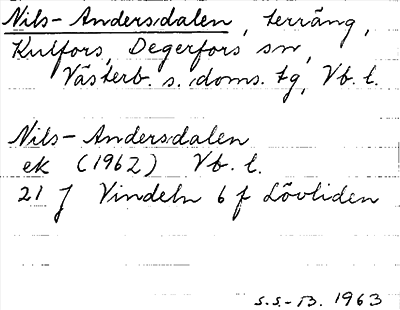 Nils-Andersdalen, terräng,
Kulfors, Degerfors sn,
Västerb. s. doms. tg, Vb. l.
Nils-Andersdalen
ek (1962) Vb. l.
21 J Vindeln 6 f Lövliden
S.S-B. 1963